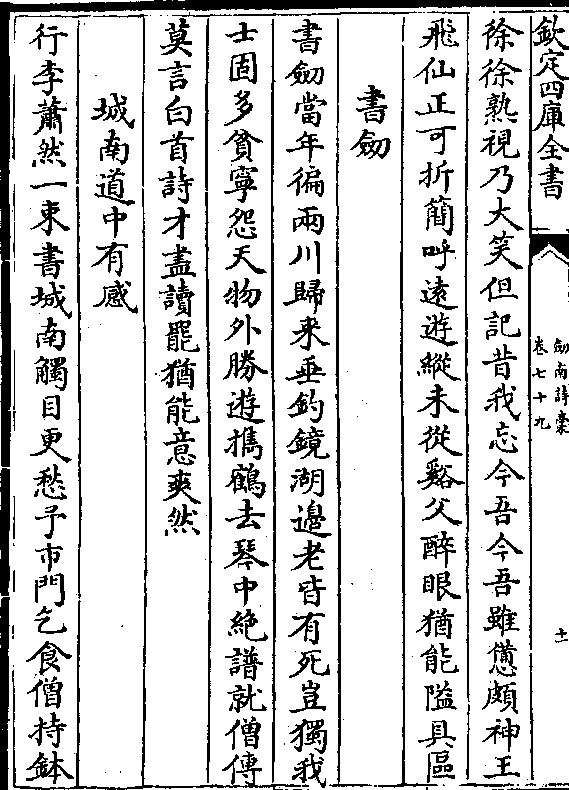 欽定四庫全書
劍南詩稾
卷七十九
十一
徐徐熟視乃大笑但記昔我忘今吾今吾雖憊頗神王
飛仙正可折簡呼遠遊縱未從谿父醉眼猶能隘具區
書劒
書劒當年徧兩川歸来垂釣鏡湖邉老皆有死豈獨我
士固多貧寧怨天物外勝遊攜鶴去琴中絶譜就僧傳
莫言白首詩才盡讀罷猶能意爽然
城南道中有感
行李蕭然一束書城南觸目更愁予市門乞食僧持鉢